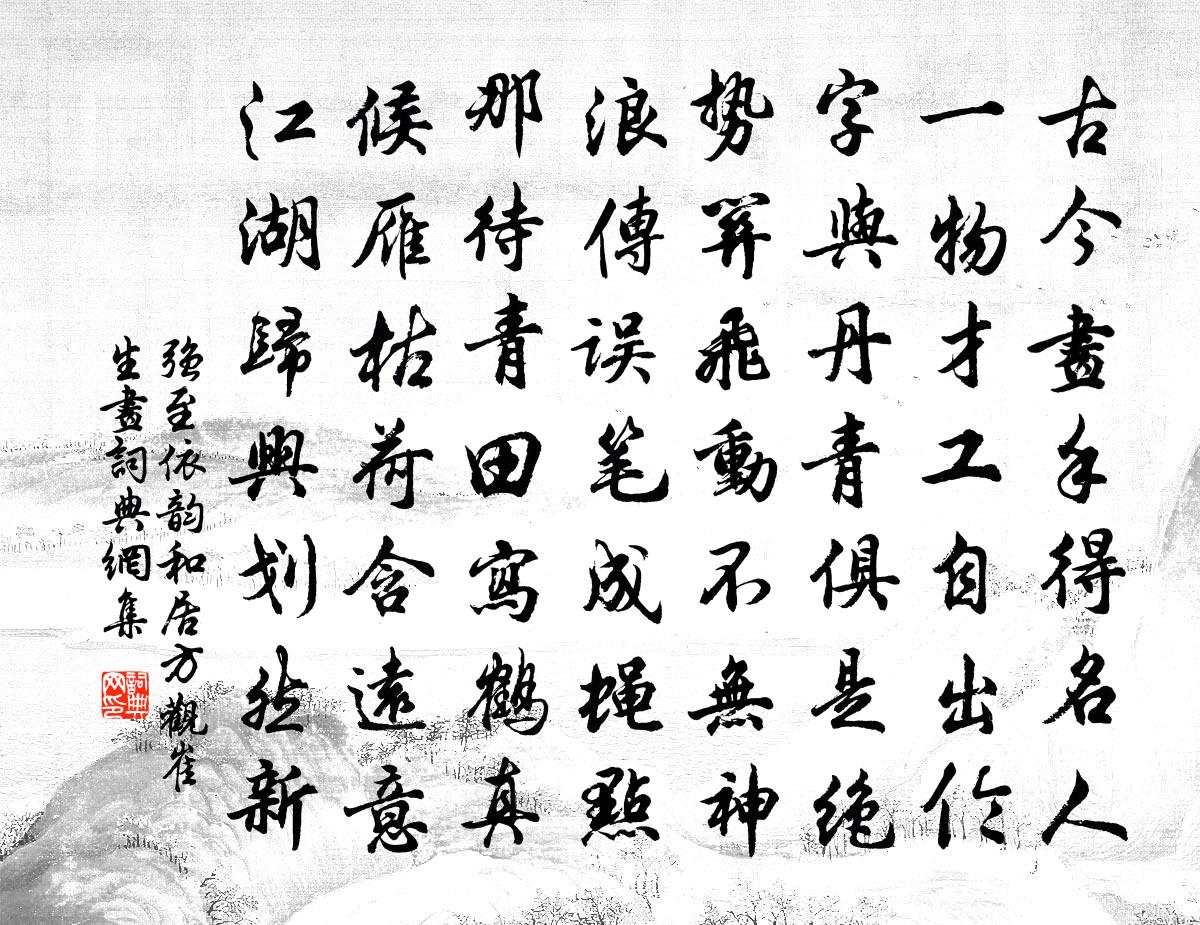 古今畫手得名人
一物才工自出伦
字與丹青俱是绝
势飛動不無神
浪傳误笔成蝇點
那待青田寫鹤真
候雁枯荷含遠意
江湖歸興划然新
强至依韵和居方觀崔
生畫詞典網集
詞典网印